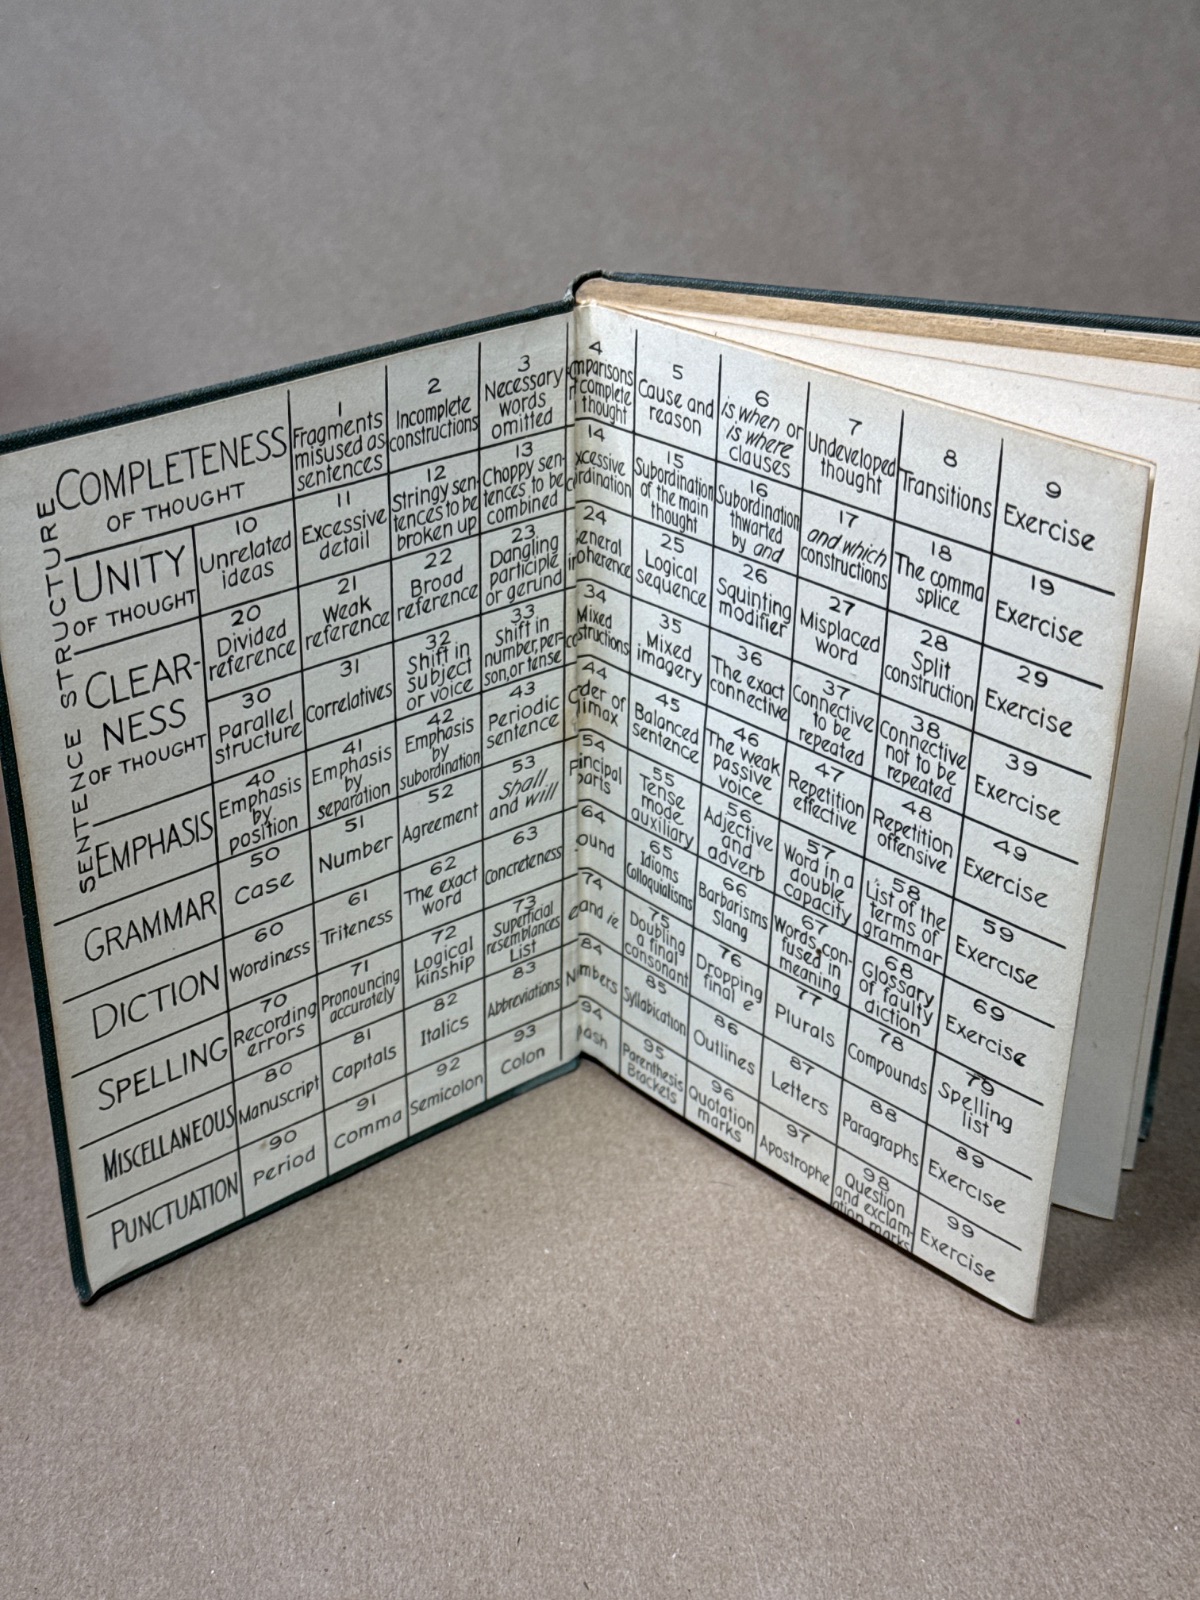 SENTENCE STRUCTURE
COMPLETENESS
OF THOUGHT
1
Fragments
misused as
sentences
2
Incomplete
constructions
3
Necessary
words
omitted
4
mparisons
complete
thought
5
Cause and
reason
6
is when or
is where
clauses
7
Undeveloped
thought
8
Transitions
9
Exercise
UNITY
OF THOUGHT
10
Unrelated
ideas
11
Excessive
detail
12
Stringy sen-
tences to be
broken up
13
Choppy sen-
tences to be
combined
14
xcessive
ordination
15
Subordination
of the main
thought
16
Subordination
thwarted
by and
17
and which
constructions
18
The comma
splice
19
Exercise
CLEAR-
NESS
OF THOUGHT
20
Divided
reference
21
Weak
reference
22
Broad
reference
23
Dangling
participle
or gerund
24
General
incoherence
25
Logical
sequence
26
Squinting
modifier
27
Misplaced
word
28
Split
construction
29
Exercise
30
Parallel
structure
31
Correlatives
32
Shift in
subject
or voice
33
Shift in
number, per-
son, or tense
34
Mixed
constructions
35
Mixed
imagery
36
The exact
connective
37
Connective
to be
repeated
38
Connective
not to be
repeated
39
Exercise
EMPHASIS
40
Emphasis
by
position
41
Emphasis
by
separation
42
Emphasis
by
subordination
43
Periodic
sentence
44
Order of
climax
45
Balanced
sentence
46
The weak
passive
voice
47
Repetition
effective
48
Repetition
offensive
49
Exercise
GRAMMAR
50
Case
51
Number
52
Agreement
53
shall
and will
54
Principal
parts
55
Tense
mode
auxiliary
56
Adjective
and
adverb
57
Word in a
double
capacity
58
List of the
terms of
grammar
59
Exercise
DICTION
60
Wordiness
61
Triteness
62
The exact
word
63
Concreteness
64
ound
65
Idioms
Colloquialisms
66
Barbarisms
Slang
67
Words con-
fused in
meaning
68
Glossary
of faulty
diction
69
Exercise
SPELLING
70
Recording
errors
71
Pronouncing
accurately
72
Logical
kinship
73
Superficial
resemblances
List
74
and ie
75
Doubling
a final
consonant
76
Dropping
final e
77
Plurals
78
Compounds
79
Spelling
list
MISCELLANEOUS
80
Manuscript
81
Capitals
82
Italics
83
Abbreviations
84
Numbers
85
Syllabication
86
Outlines
87
Letters
88
Paragraphs
89
Exercise
PUNCTUATION
90
Period
91
Comma
92
Semicolon
93
Colon
94
Dash
95
Parenthesis
Brackets
96
Quotation
marks
97
Apostrophe
98
Question
and exclam-
ation marks
99
Exercise